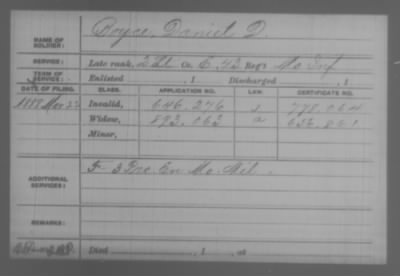 NAME OF SOLDIER: Royce, Daniel D.
SERVICE: Late rank, 2 Lt Co. E, 42 Reg't Mo Inf
TERM OF SERVICE: Enlisted , 1 Discharged , 1
DATE OF FILING. CLASS. APPLICATION NO. LAW. CERTIFICATE NO.
1888 Mar 22 Invalid, 646.276 778.064
Widow, 892.062 a
Minor,
ADDITIONAL SERVICES: F 3 En. Mo. Mil.
REMARKS:
Died , 1 , at